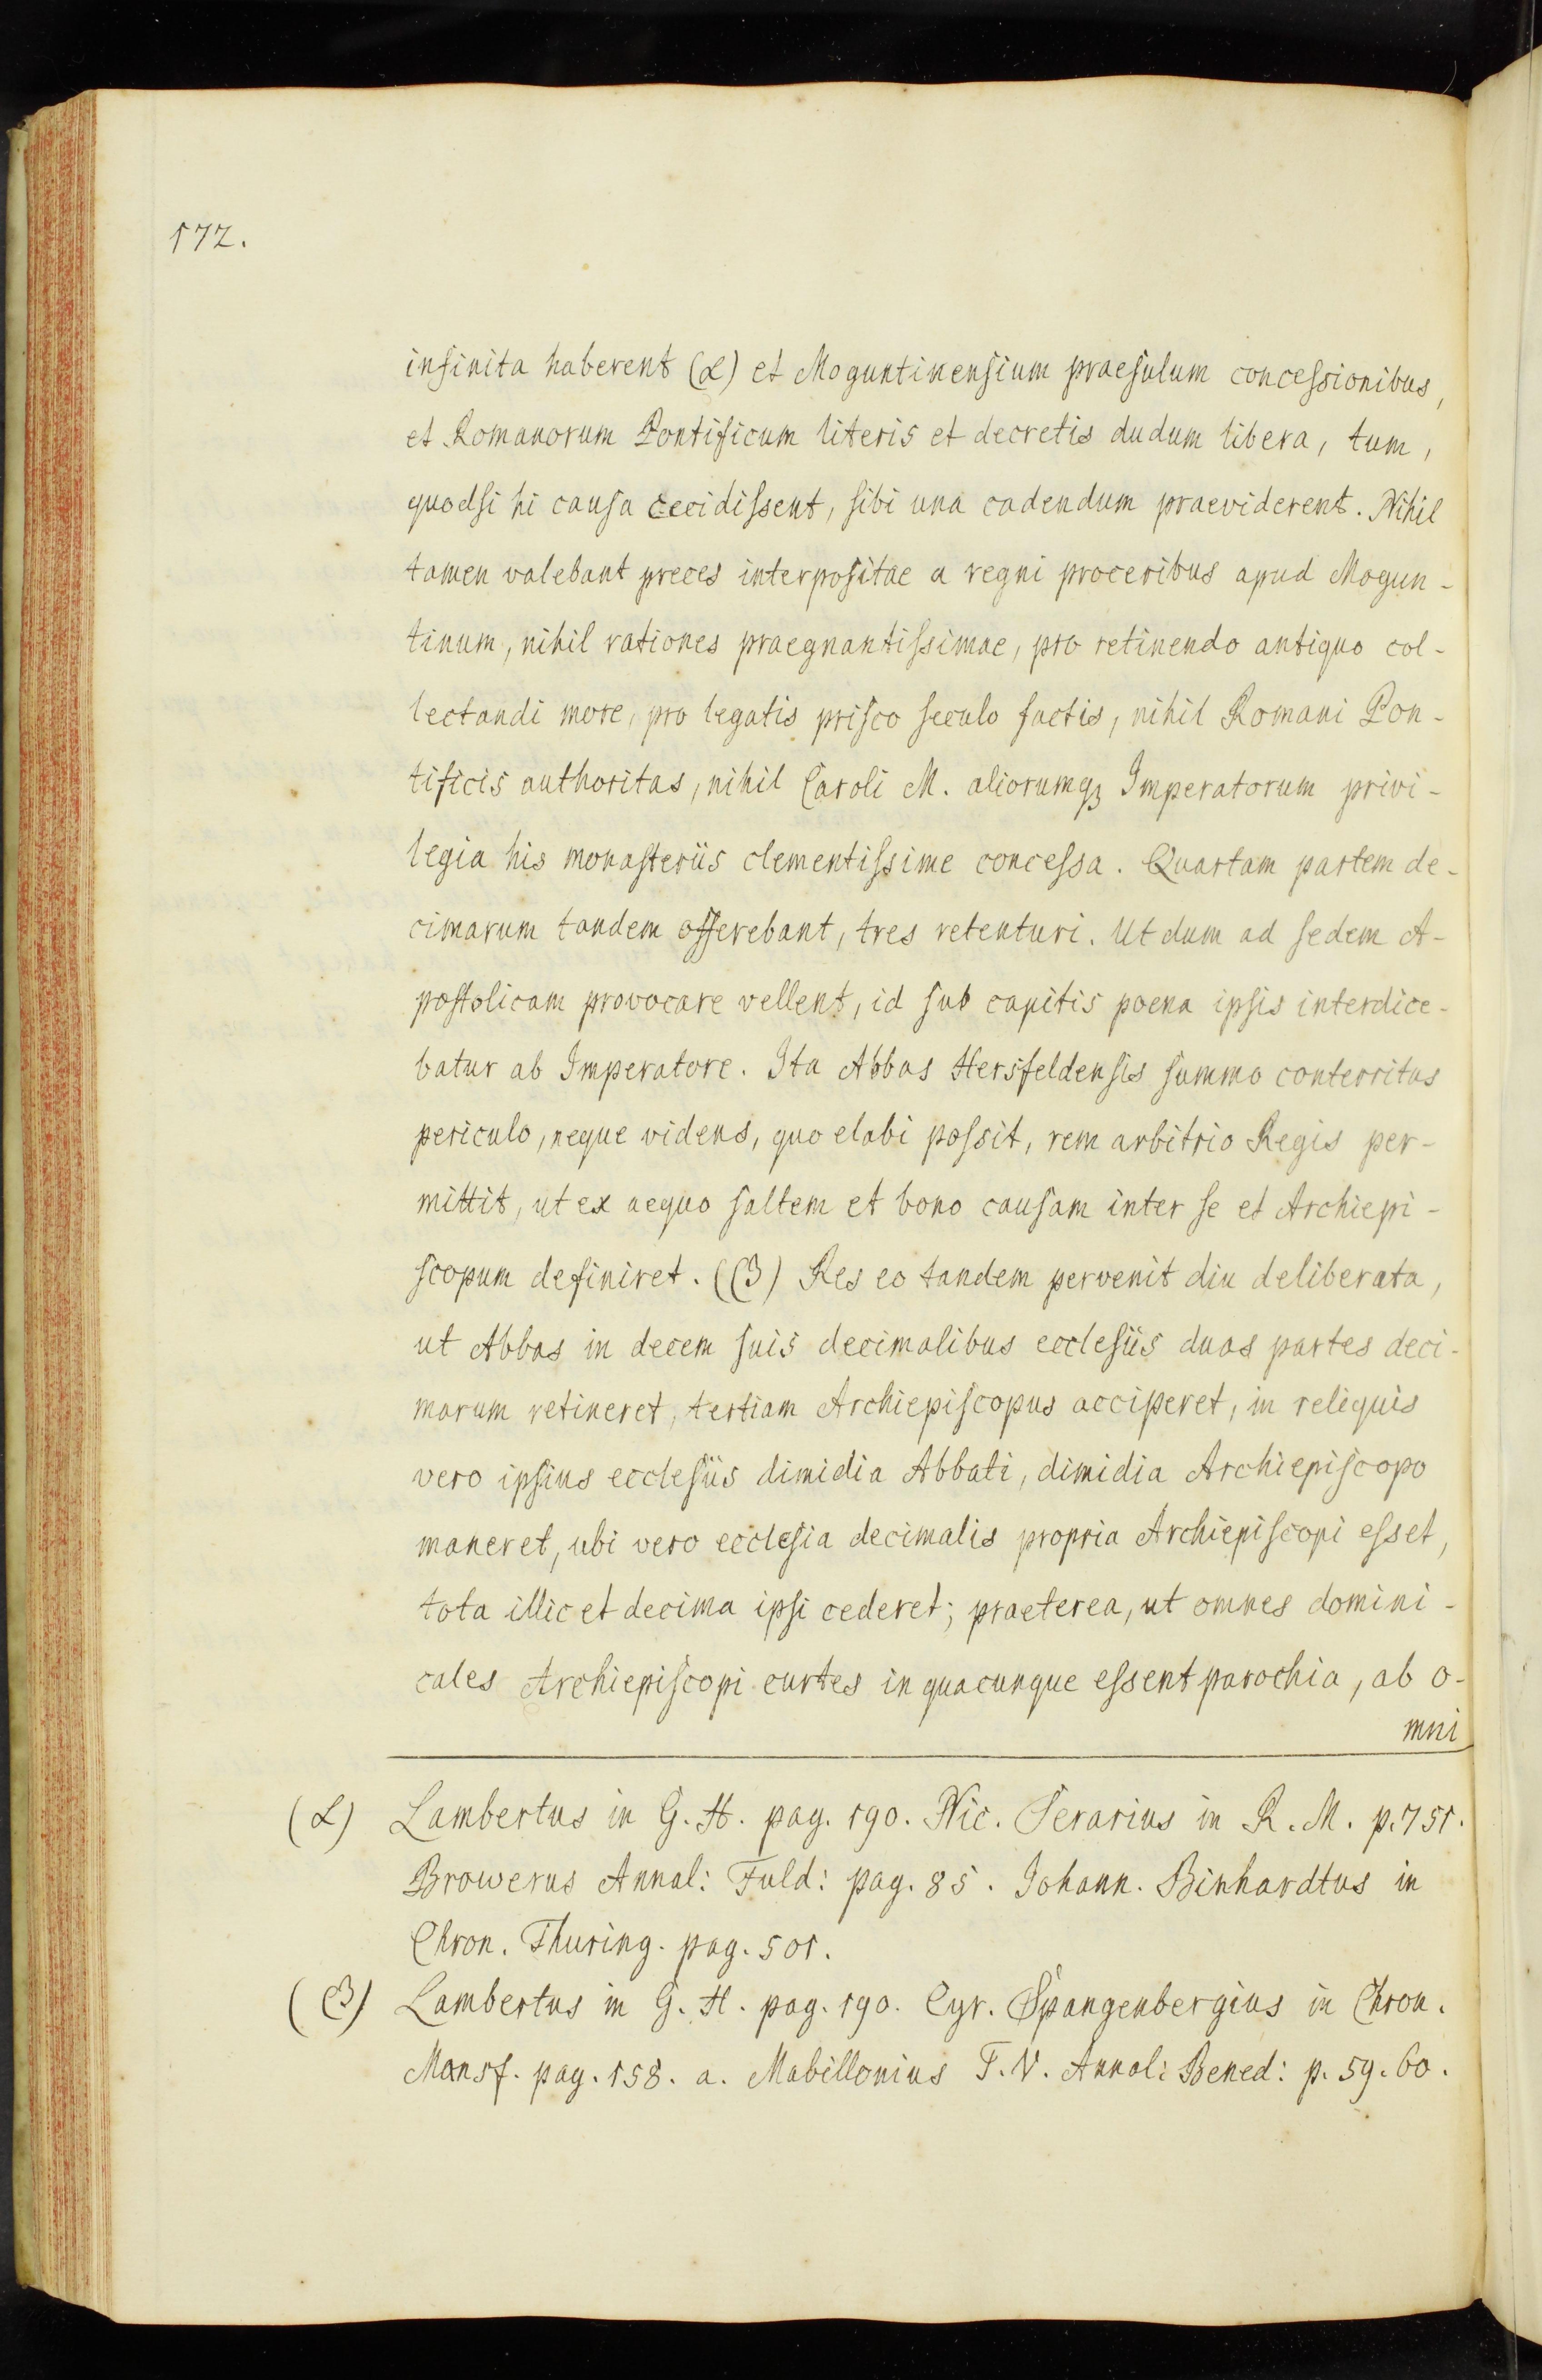 172.
infinita haberent (α) et Moguntinensium praeſulum conceſsionibus,
et Romanorum Pontificum literis et decretis dudum libera, tum,
quodſi hi cauſa cecidiſsent, ſibi una cadendum praeviderent. Nihil
tamen valebant preces interpoſitae a regni proceribus apud Mogun-
tinum, nihil rationes praegnantiſsimae, pro retinendo antiquo col-
lectandi more, pro legatis priſco ſeculo factis, nihil Romani Pon-
tificis authoritas, nihil Caroli M. aliorumqꝫ Imperatorum privi-
legia his monaſteriis clementiſsime conceſsa. Quartam partem de-
cimarum tandem offerebant, tres retenturi. Ut dum ad ſedem A-
poſtolicam provocare vellent, id ſub capitis poena ipſis interdice-
batur ab Imperatore. Ita Abbas Hersfeldenſis ſummo conterritus
periculo, neque videns, quo elabi poſsit, rem arbitrio Regis per-
mittit, ut ex aequo ſaltem et bono cauſam inter ſe et Archiepi-
ſcopum definiret. (β) Res eo tandem pervenit diu deliberata,
ut Abbas in decem ſuis decimalibus eccleſiis duas partes deci-
marum retineret, tertiam Archiepiſcopus acciperet, in reliquis
vero ipſius eccleſiis dimidia Abbati, dimidia Archiepiſcopo
maneret, ubi vero eccleſia decimalis propria Archiepiſcopi eſset,
tota illic et decima ipſi cederet; praeterea, ut omnes domini-
cales Archiepiſcopi curtes in quacunque eſsent parochia, ab o-
mni
(α) Lambertus in G. H. pag. 190. Nic. Serarius in R. M. p. 751.
Browerus Annal: Fuld: pag. 85. Johann. Binhardtus in
Chron. Thuring. pag. 501.
(β) Lambertus in G. H. pag. 190. Cyr. Spangenbergius in Chron.
Mansf. pag. 158. a. Mabillonius T. V. Annal: Bened: p. 59. 60.